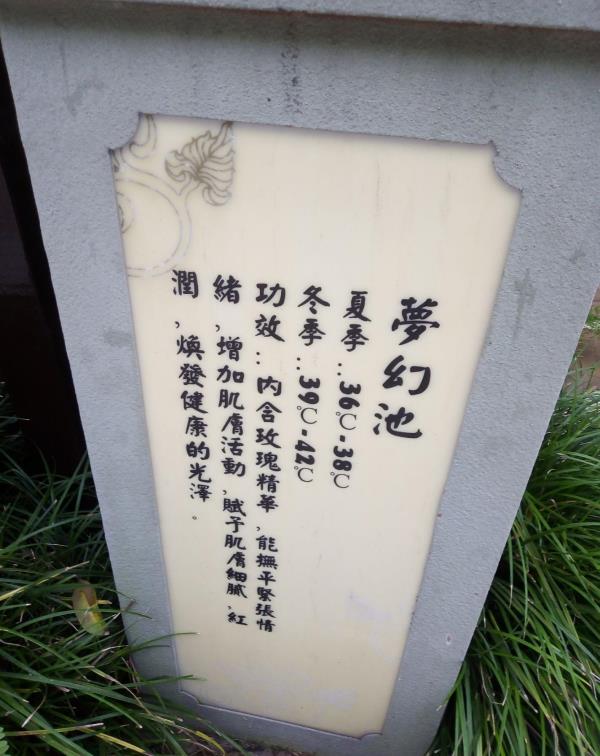 夢幻池
夏季：36℃-38℃
冬季：39℃-42℃
功效：內含玫瑰精華，能撫平緊張情
緒，增加肌膚活動，賦予肌膚細膩、紅
潤，煥發健康的光澤。